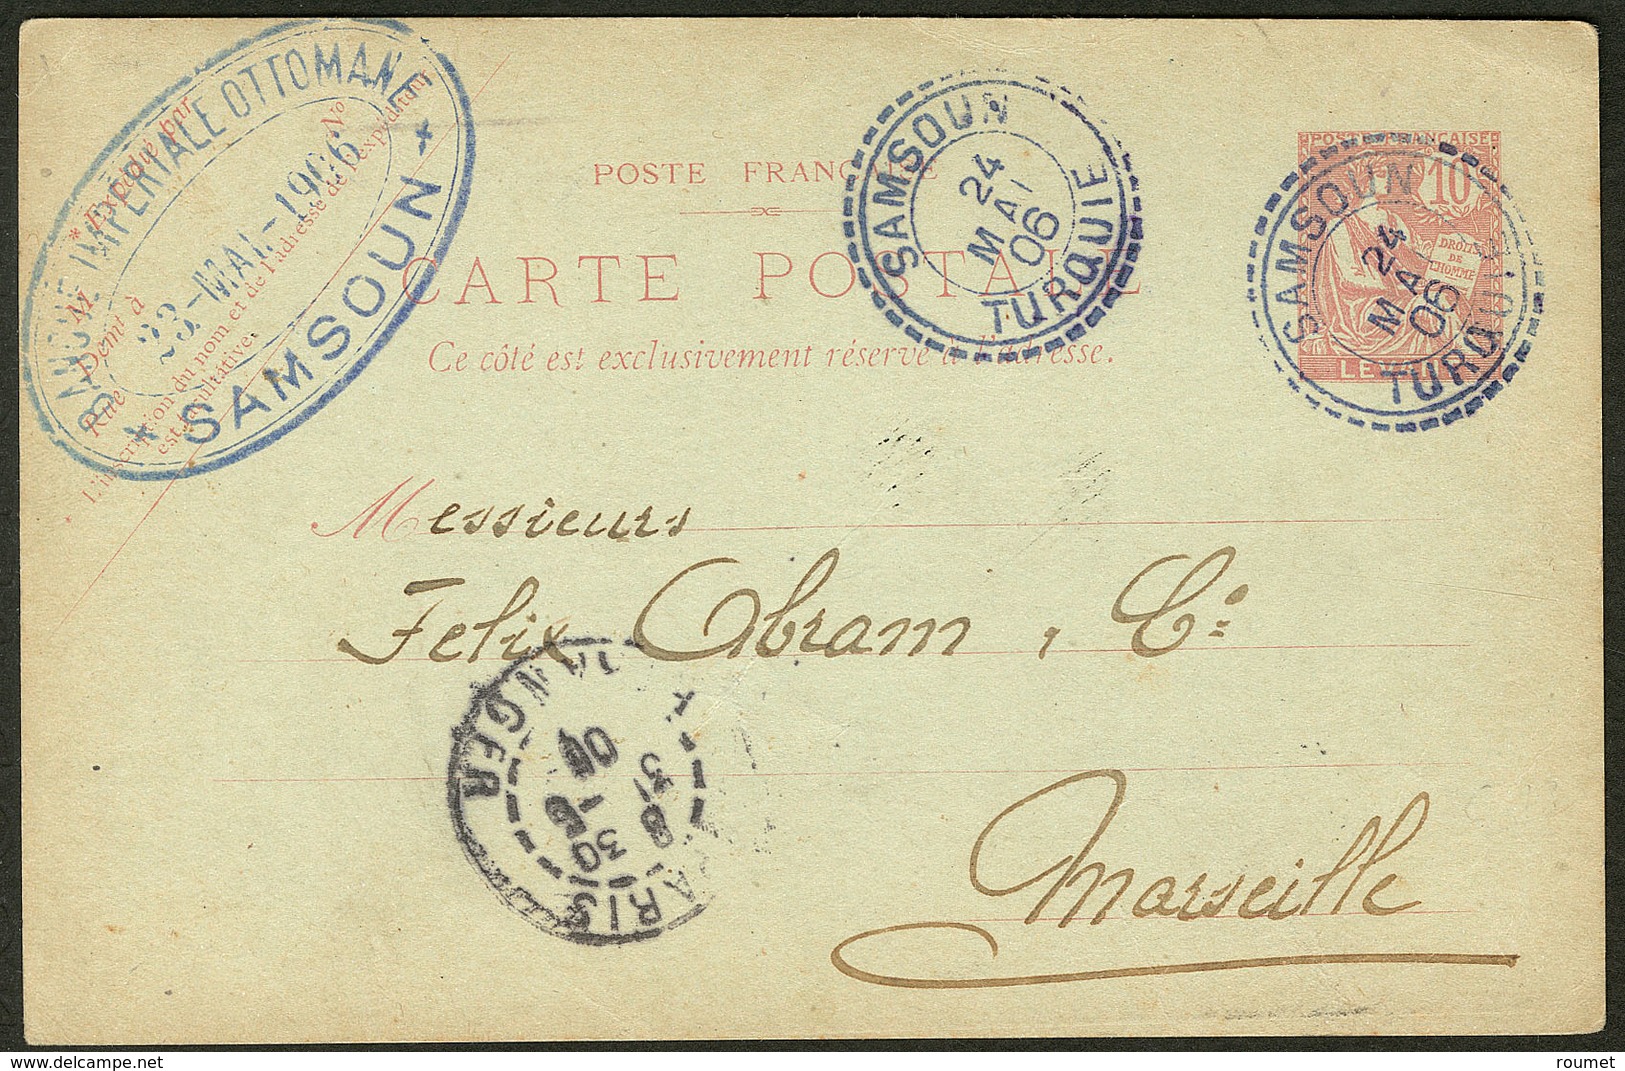 BANQUE IMPÉRIALE OTTOMANE
23-MAI-1906
SAMSOUN
* Expédié par
M
Demt à
Rue No
L'inscription du nom et de l'adresse de l'expéditeur
est facultative.
POSTE FRANÇAISE
CARTE POSTALE
Ce côté est exclusivement réservé à l'adresse.
SAMSOUN
24
MAI
06
TURQUIE
POSTE FRANÇAISE
10
DROITS
DE
L'HOMME
LEVANT
SAMSOUN
24
MAI
06
TURQUIE
Messieurs
Felix Abram, Cie
Marseille
PARIS
ETRANGER
30
roumet